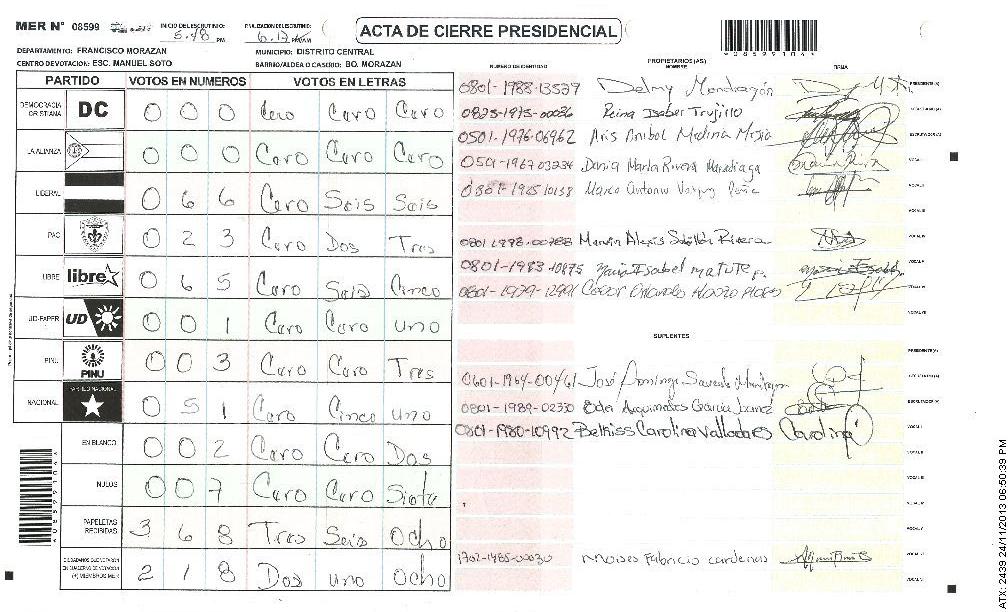 MER N° 08599
INICIO DEL ESCRUTINIO: 5:48 PM
FINALIZACION DEL ESCRUTINIO: 6:17 PM/AM
ACTA DE CIERRE PRESIDENCIAL
*08599104*
DEPARTAMENTO: FRANCISCO MORAZAN
MUNICIPIO: DISTRITO CENTRAL
CENTRO DE VOTACION: ESC. MANUEL SOTO
BARRIO/ALDEA O CASERIO: BO. MORAZAN
PARTIDO VOTOS EN NUMEROS VOTOS EN LETRAS
DEMOCRACIA CRISTIANA DC 0 0 0 Cero Cero Cero
LA ALIANZA 0 0 0 Cero Cero Cero
LIBERAL 0 6 6 Cero Seis Seis
PAC 0 2 3 Cero Dos Tres
LIBRE libre 0 6 5 Cero Seis Cinco
UD-FAPER UD 0 0 1 Cero Cero uno
PINU PINU 0 0 3 Cero Cero Tres
NACIONAL PARTIDO NACIONAL 0 5 1 Cero Cinco uno
EN BLANCO 0 0 2 Cero Cero Dos
NULOS 0 0 7 Cero Cero Siete
PAPELETAS RECIBIDAS 3 6 8 Tres Seis Ocho
CIUDADANOS QUE VOTARON EN CUADERNO DE VOTACION (+) MIEMBROS MER 2 1 8 Dos uno Ocho
NUMERO DE IDENTIDAD
PROPIETARIOS (AS)
NOMBRE
FIRMA
0801-1988-13537 Delmy Mondragón PRESIDENTE(A)
0825-1975-00036 Reina Isabel Trujillo SECRETARIO(A)
0501-1976-06962 Aris Anibol Medina Mejia ESCRUTADOR(A)
Dania Marla Rivera VOCAL I
Marco Antonio Peña VOCAL II
VOCAL III
Marvin Alexis Rivera VOCAL IV
0801-1983-10875 Isabel matute VOCAL V
VOCAL VI
VOCAL VII
SUPLENTES
PRESIDENTE(A)
0601-1964-00461 José Domingo SECRETARIO(A)
0801-1989-02330 Garcia ESCRUTADOR(A)
0801-1980-10992 Carolina Valladares Carolina VOCAL I
VOCAL II
VOCAL III
VOCAL IV
VOCAL V
Moises Fabricio cardenas VOCAL VI
VOCAL VII
*08599104*
ATX: 2439 24/11/2013 06:50:39 PM